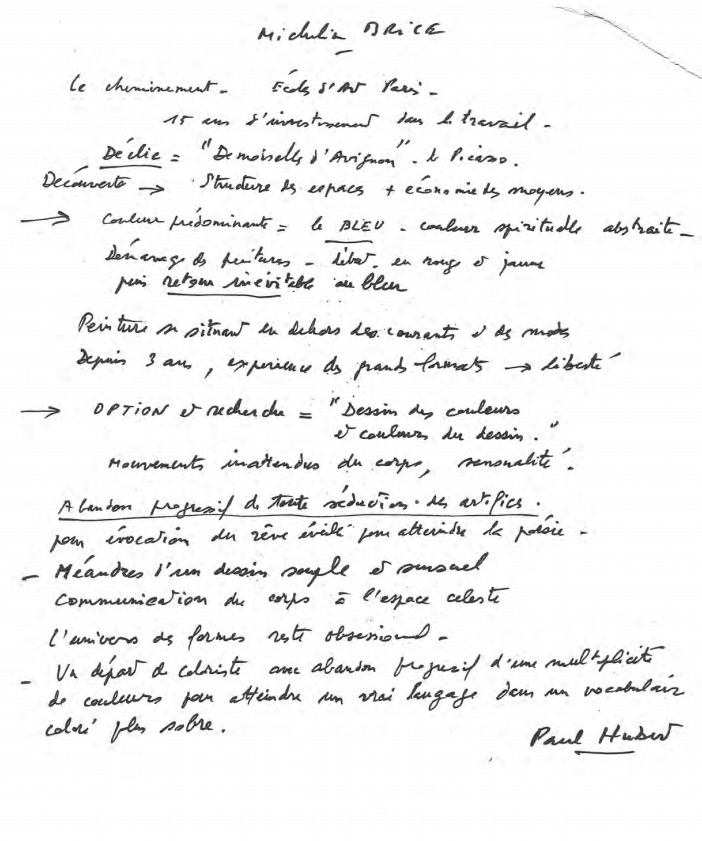 Micheline BRICE
Le cheminement - École d'Art Paris -
15 ans d'investissement dans le travail -
Déclic = "Demoiselles d'Avignon" - de Picasso.
Découverte → Structure des espaces + économie des moyens.
→ Couleur prédominante = le BLEU - couleur spirituelle abstraite -
Démarrage des peintures - début - en rouge et jaune
puis retour inévitable au bleu
Peinture se situant en dehors des courants et des modes
Depuis 3 ans, expérience des grands formats → liberté
→ OPTION et recherche = "Dessin des couleurs
et couleurs du dessin."
Mouvements inattendus du corps, sensualité.
Abandon progressif de toute séduction - des artifices.
pour évocation du rêve éveillé pour atteindre la poésie -
- Méandres d'un dessin souple et sensuel
Communication du corps à l'espace celeste
L'univers des formes reste obsessionnel -
- Un départ de coloriste avec abandon progressif d'une multiplicité
de couleurs pour atteindre un vrai langage dans un vocabulaire
coloré plus sobre.
Paul Hubert